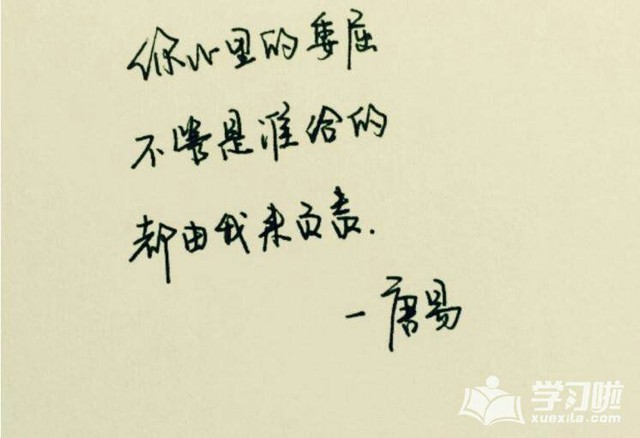 你心里的委屈
不管是谁给的
都由我来负责.
—唐易
学习啦
xuexila.com